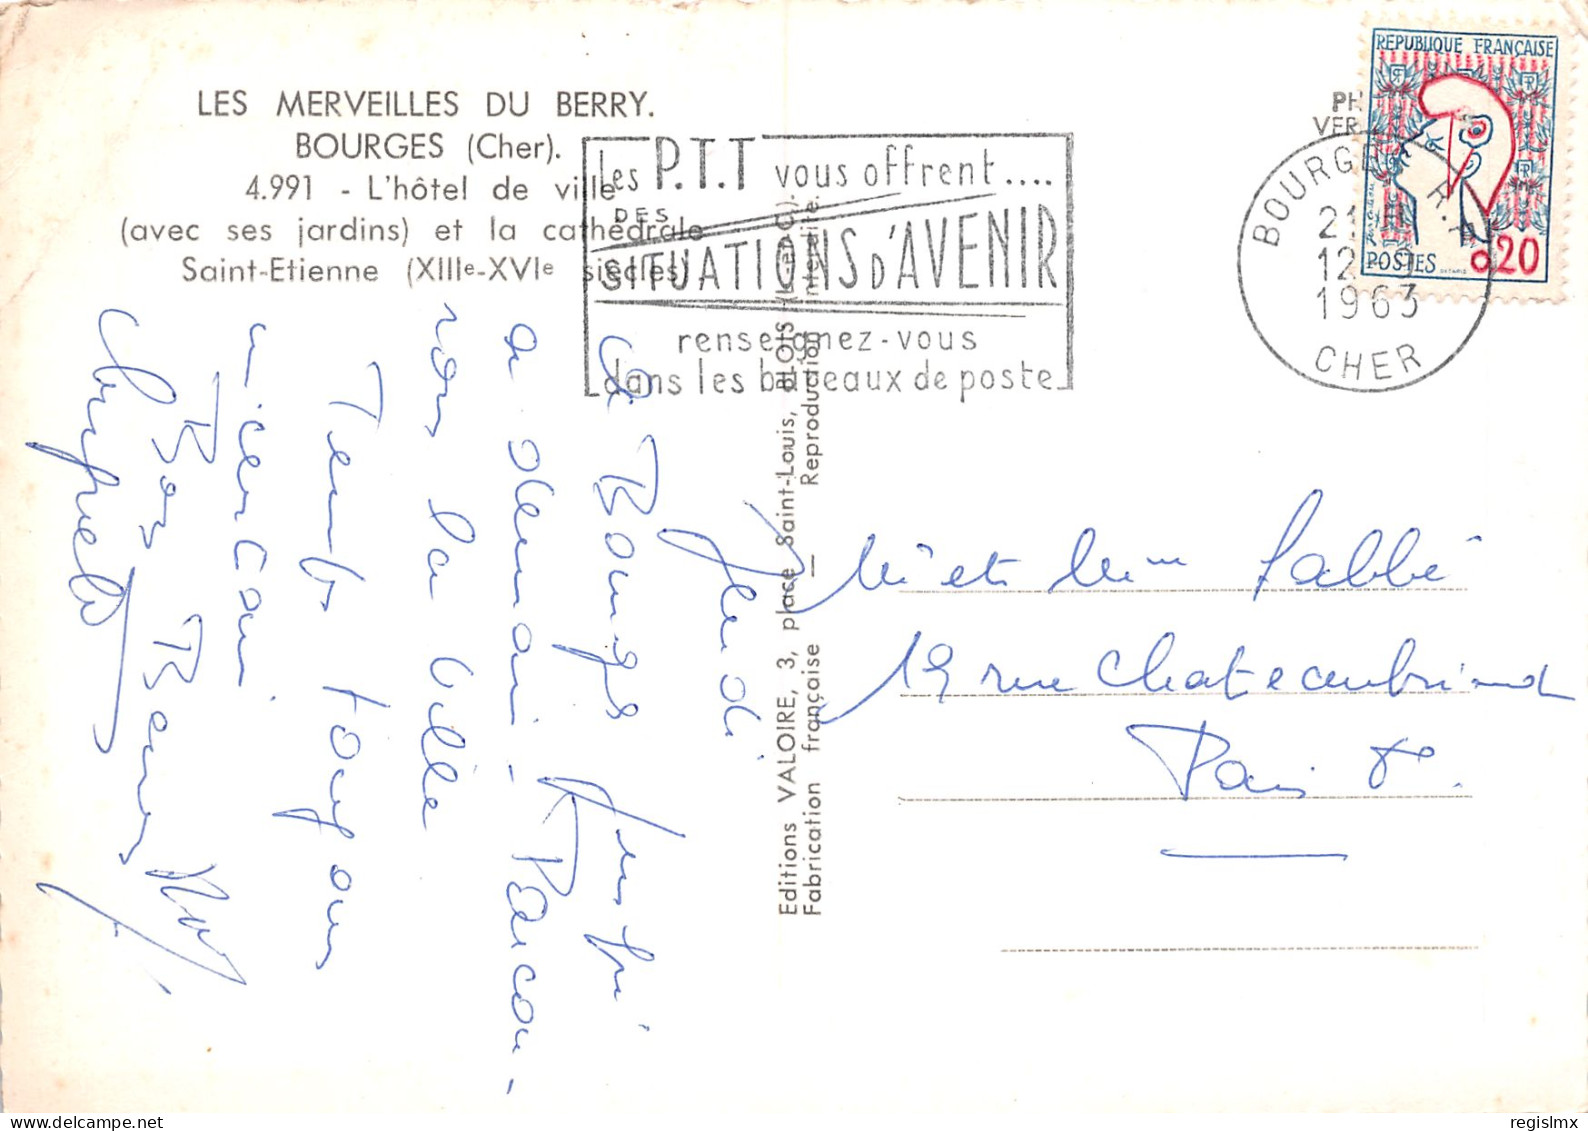 LES MERVEILLES DU BERRY.
BOURGES (Cher).
4.991 - L'hôtel de ville
(avec ses jardins) et la cathédrale
Saint-Etienne (XIIIe-XVIe siècles)
les P.T.T vous offrent....
DES
SITUATIONS d'AVENIR
renseignez-vous
dans les bureaux de poste
BOURGES R.P.
21 H
12
1963
CHER
REPUBLIQUE FRANÇAISE
POSTES 0,20
Editions VALOIRE, 3, place Saint-Louis, BLOIS (L.-&-C.).
Fabrication française — Reproduction interdite.
Jeudi
de Bourges jusqu'
a demain. Parcou-
rons la ville
Temps toujours
incertain
Bons Baisers
Mr et Mme Labbé
19 rue Chateaubriand
Paris 8e.
regislmx